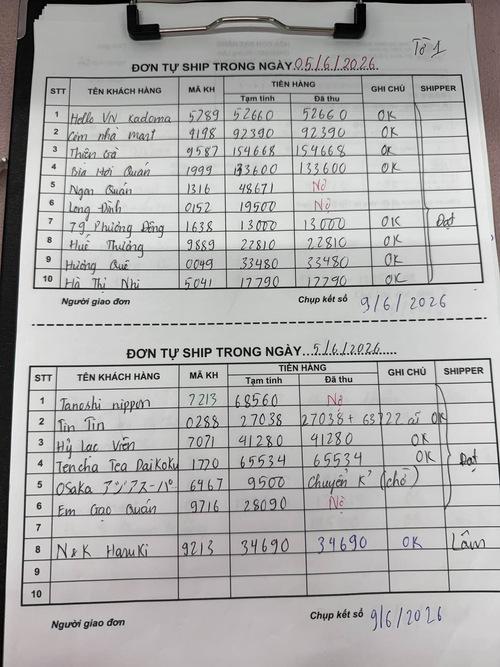 Tờ 1
ĐƠN TỰ SHIP TRONG NGÀY 05/6/2026
STT TÊN KHÁCH HÀNG MÃ KH TIỀN HÀNG GHI CHÚ SHIPPER
Tạm tính Đã thu
1 Hello VN Kadoma 5789 52660 52660 OK
2 Cơm nhà mart 9198 92390 92390 OK
3 Thiên Trà 9587 154668 154668 OK
4 Bia Hơi Quán 1999 133600 133600 OK
5 Ngan Quán 1316 48671 Nợ
6 Long Đình 0152 19500 Nợ
7 79 Phương Đông 1638 13000 13000 OK Đạt
8 Huế Thương 9889 22810 22810 OK
9 Hương Quê 0049 33480 33480 OK
10 Hà Thị Nhi 5041 17790 17790 OK
Người giao đơn Chụp kết sổ 9/6/2026
ĐƠN TỰ SHIP TRONG NGÀY...5/6/2026.....
STT TÊN KHÁCH HÀNG MÃ KH TIỀN HÀNG GHI CHÚ SHIPPER
Tạm tính Đã thu
1 Tanoshi nippon 7213 68560 Nợ
2 Tin Tin 0288 27038 27038 + 63722 cũ OK
3 Hỷ Lạc Viên 7071 41280 41280 OK
4 Tencha Tea Daikoku 1770 65534 65534 OK Đạt
5 Osaka アジアスーパー 6467 9500 Chuyển K² (chờ)
6 Em Gạo Quán 9716 28090 Nợ
7
8 N&K Haruki 9213 34690 34690 OK Lâm
9
10
Người giao đơn Chụp kết sổ 9/6/2026